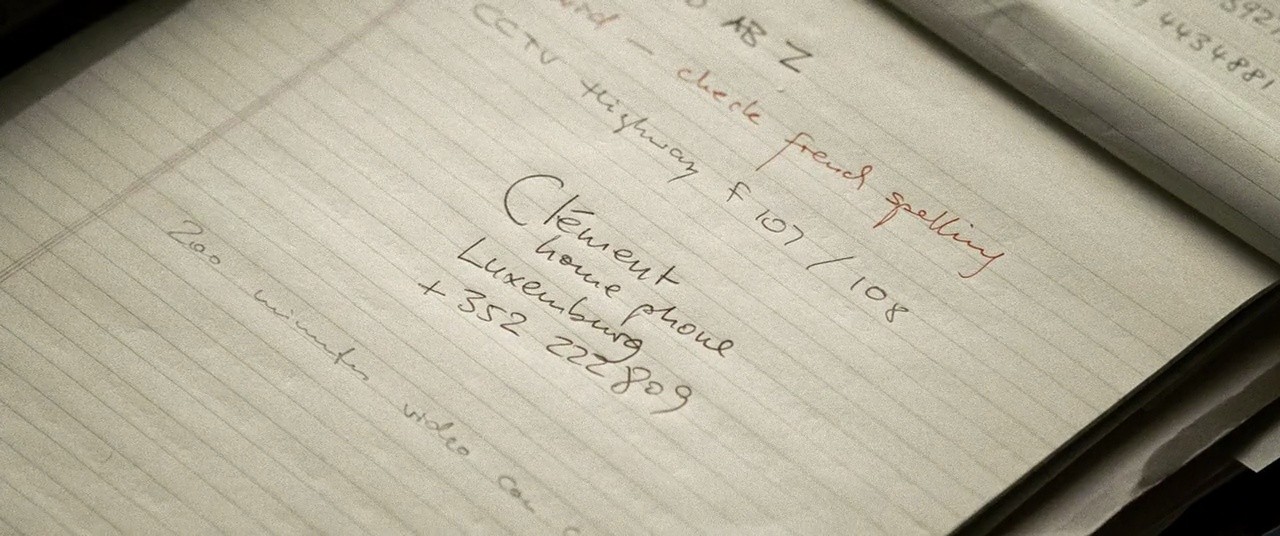 AB Z
check french spelling
CCTV Highway F 107 / 108
Clément
home phone
Luxemburg
+352 222809
200 minutes video can
4434881